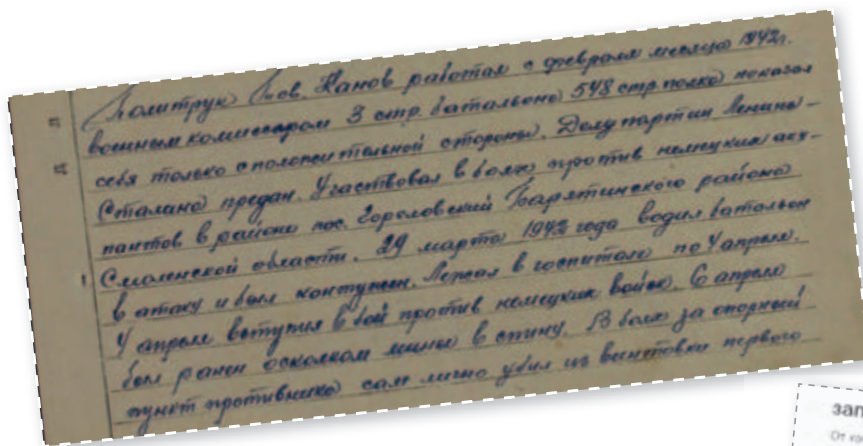 Политрук тов. Канов работая с февраля месяца 1942г.
военным комиссаром 3 стр. батальона 548 стр. полка показал
себя только с положительной стороны. Делу партии Ленина –
Сталина предан. Участвовал в боях против немецких окку-
пантов в районе пос. Гореловский Барятинского района
Смоленской области. 29 марта 1942 года водил батальон
в атаку и был контужен. Лежал в госпитале по 4 апреля.
4 апреля вступил в бой против немецких войск. 6 апреля
был ранен осколком мины в спину. В боях за опорный
пункт противника сам лично убил из винтовки первого
зап
От